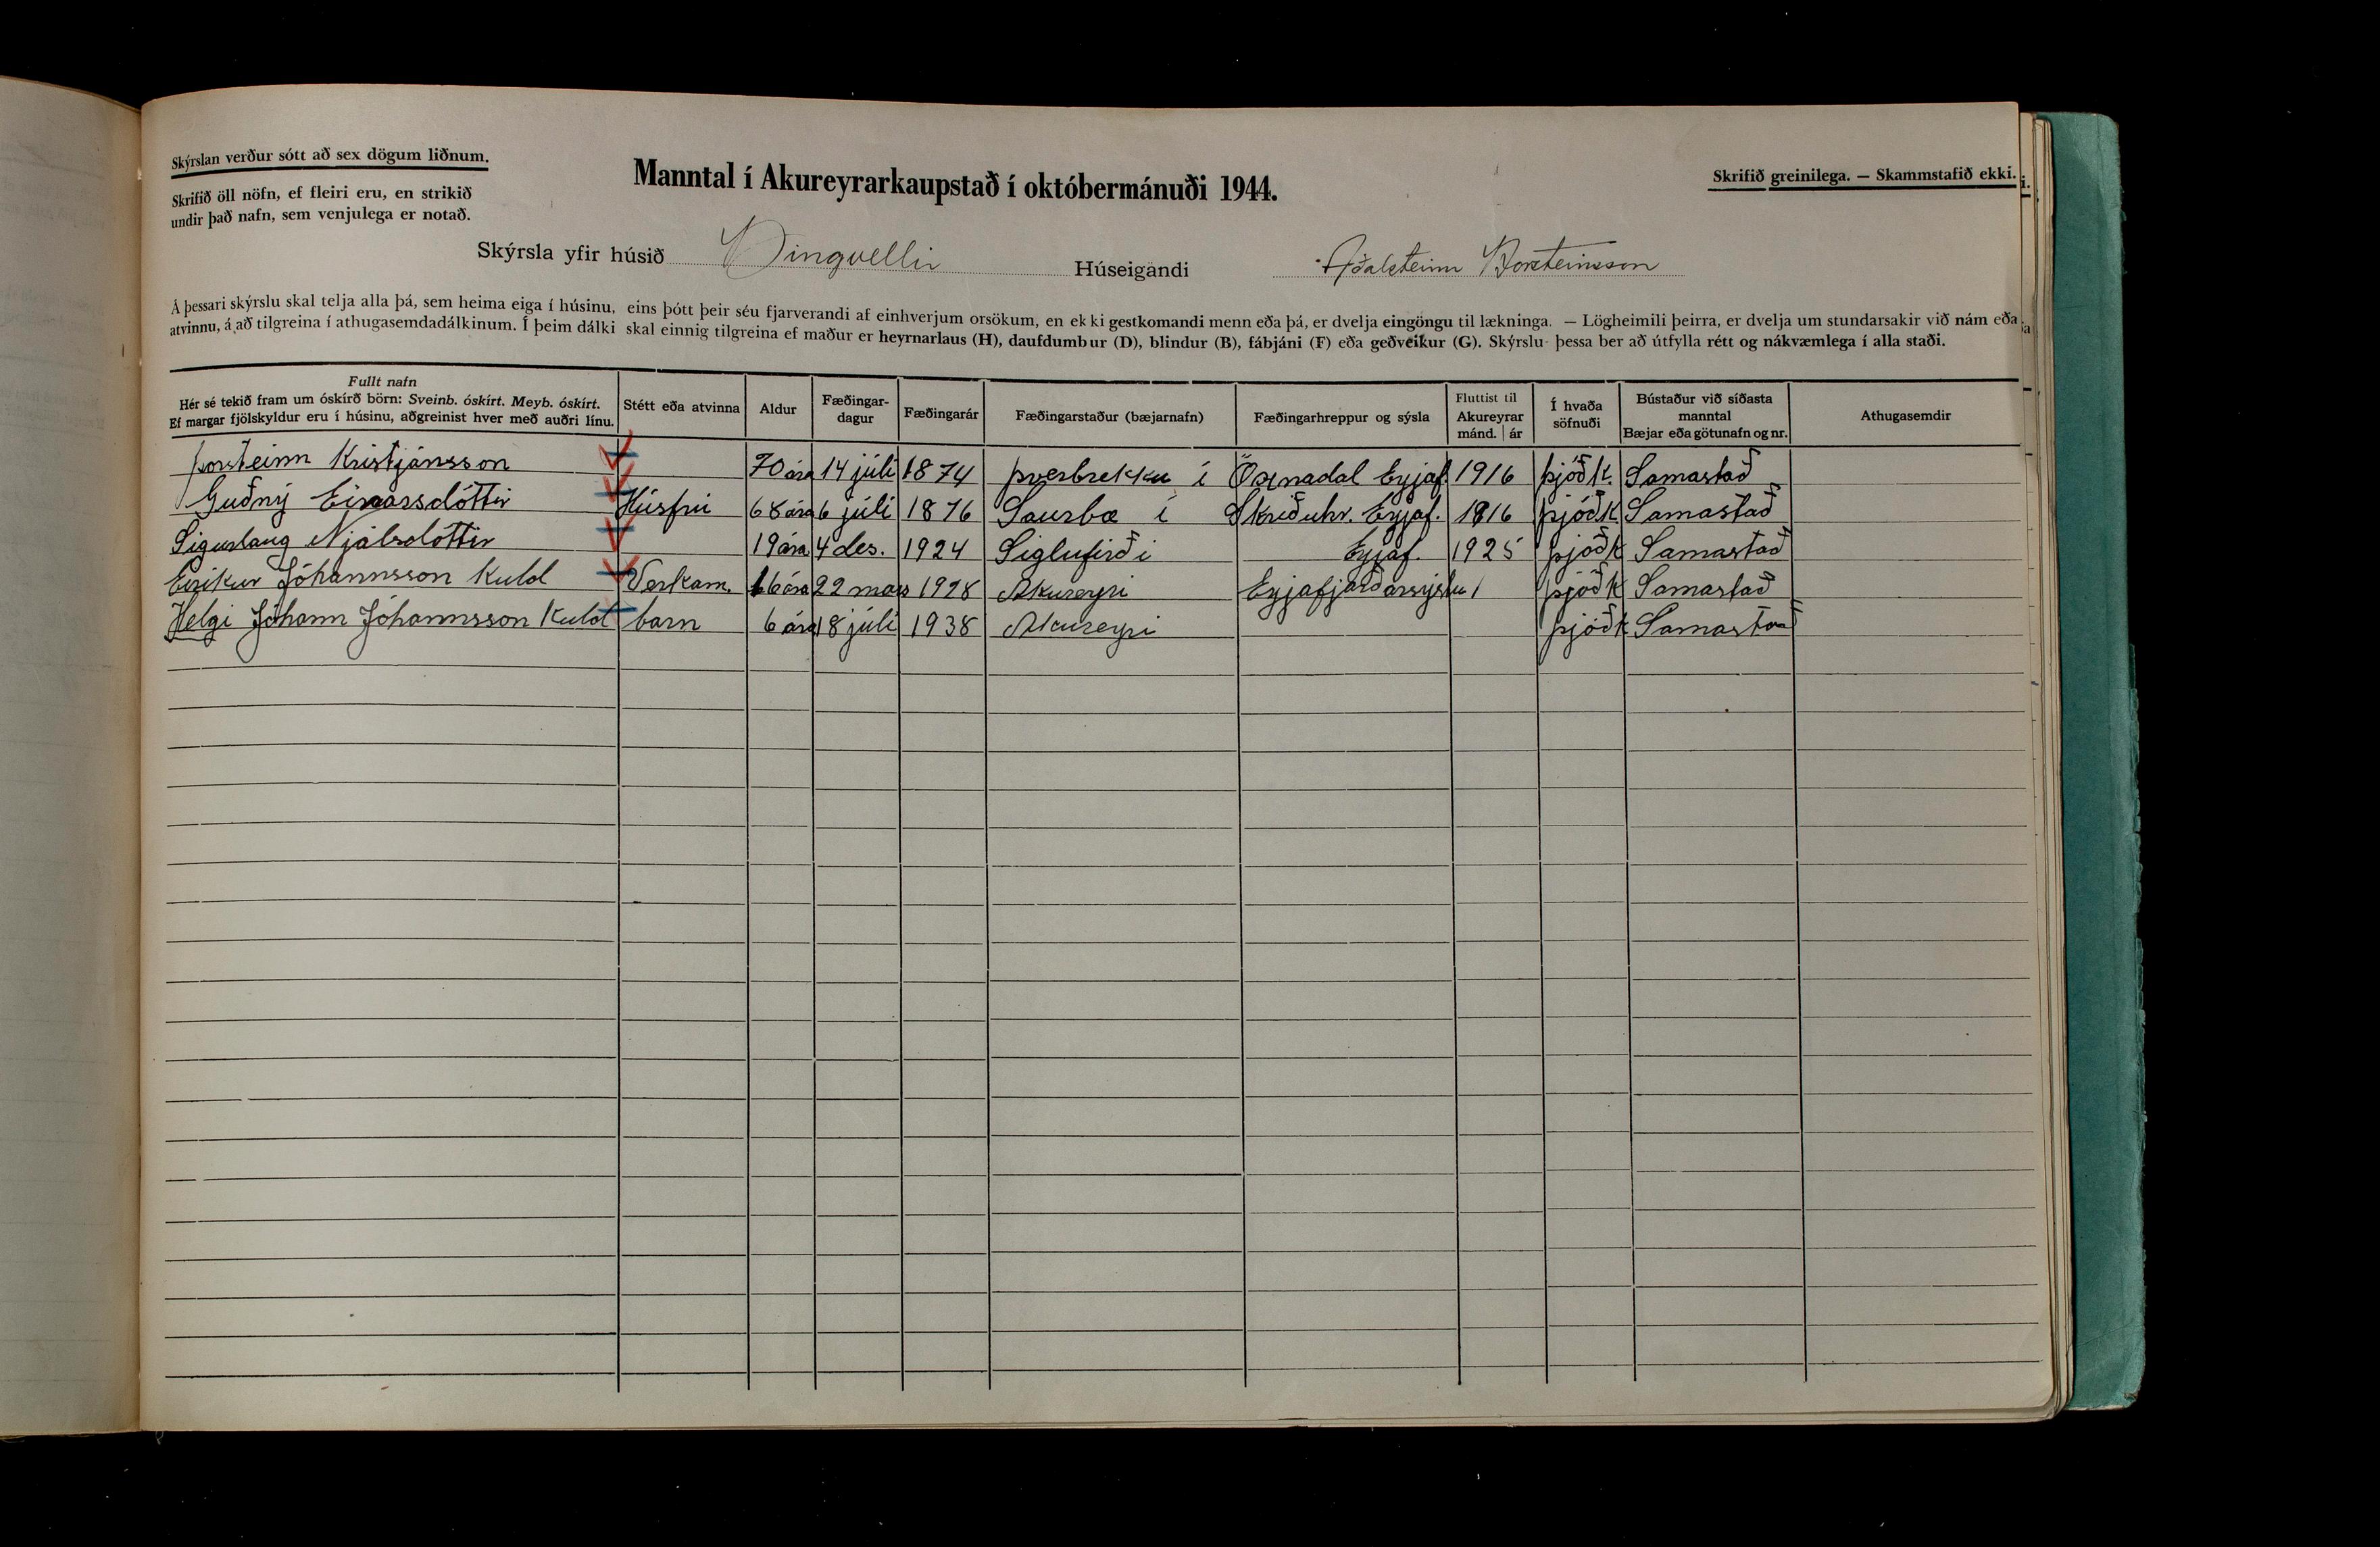 Skýrslan verður sótt að sex dögum liðnum.
Skrifið öll nöfn, ef fleiri eru, en strikið
undir það nafn, sem venjulega er notað.
Manntal í Akureyrarkaupstað í októbermánuði 1944.
Skrifið greinilega. — Skammstafið ekki.
Skýrsla yfir húsið Þingvellir Húseigandi Aðalsteinn Þorsteinsson
Á þessari skýrslu skal telja alla þá, sem heima eiga í húsinu, eins þótt þeir séu fjarverandi af einhverjum orsökum, en ekki gestkomandi menn eða þá, er dvelja eingöngu til lækninga. — Lögheimili þeirra, er dvelja um stundarsakir við nám eða
atvinnu, á að tilgreina í athugasemdadálkinum. Í þeim dálki skal einnig tilgreina ef maður er heyrnarlaus (H), daufdumbur (D), blindur (B), fábjáni (F) eða geðveikur (G). Skýrslu þessa ber að útfylla rétt og nákvæmlega í alla staði.
Fullt nafn
Hér sé tekið fram um óskírð börn: Sveinb. óskírt. Meyb. óskírt.
Ef margar fjölskyldur eru í húsinu, aðgreinist hver með auðri línu.
Stétt eða atvinna
Aldur
Fæðingar-
dagur
Fæðingarár
Fæðingarstaður (bæjarnafn)
Fæðingarhreppur og sýsla
Fluttist til
Akureyrar
mánd. | ár
Í hvaða
söfnuði
Bústaður við síðasta
manntal
Bæjar eða götunafn og nr.
Athugasemdir
Þorsteinn Kristjánsson 70 ára 14 júlí 1874 Þverbrekku í Öxnadal Eyjaf. 1916 þjóðk. Samastað
Guðný Einarsdóttir Húsfrú 68 ára 6 júlí 1876 Saurbæ í Skriðuhr. Eyjaf. 1916 þjóðk. Samastað
Sigurlaug Njálsdóttir 19 ára 4 des. 1924 Siglufirði Eyjaf. 1925 þjóðk Samastað
Eiríkur Jóhannsson Kuld Verkam. 16 ára 22 mars 1928 Akureyri Eyjafjarðarsýslu þjóðk Samastað
Helgi Jóhann Jóhannsson Kuld barn 6 ára 18 júlí 1938 Akureyri þjóðk Samastað